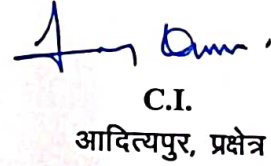 C.I.
आदित्यपुर, प्रक्षेत्र